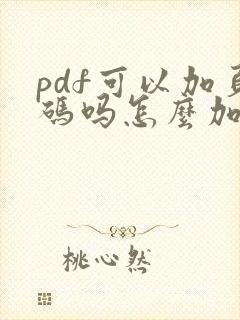 pdf可以加頁
碼吗怎麼加
桃心然